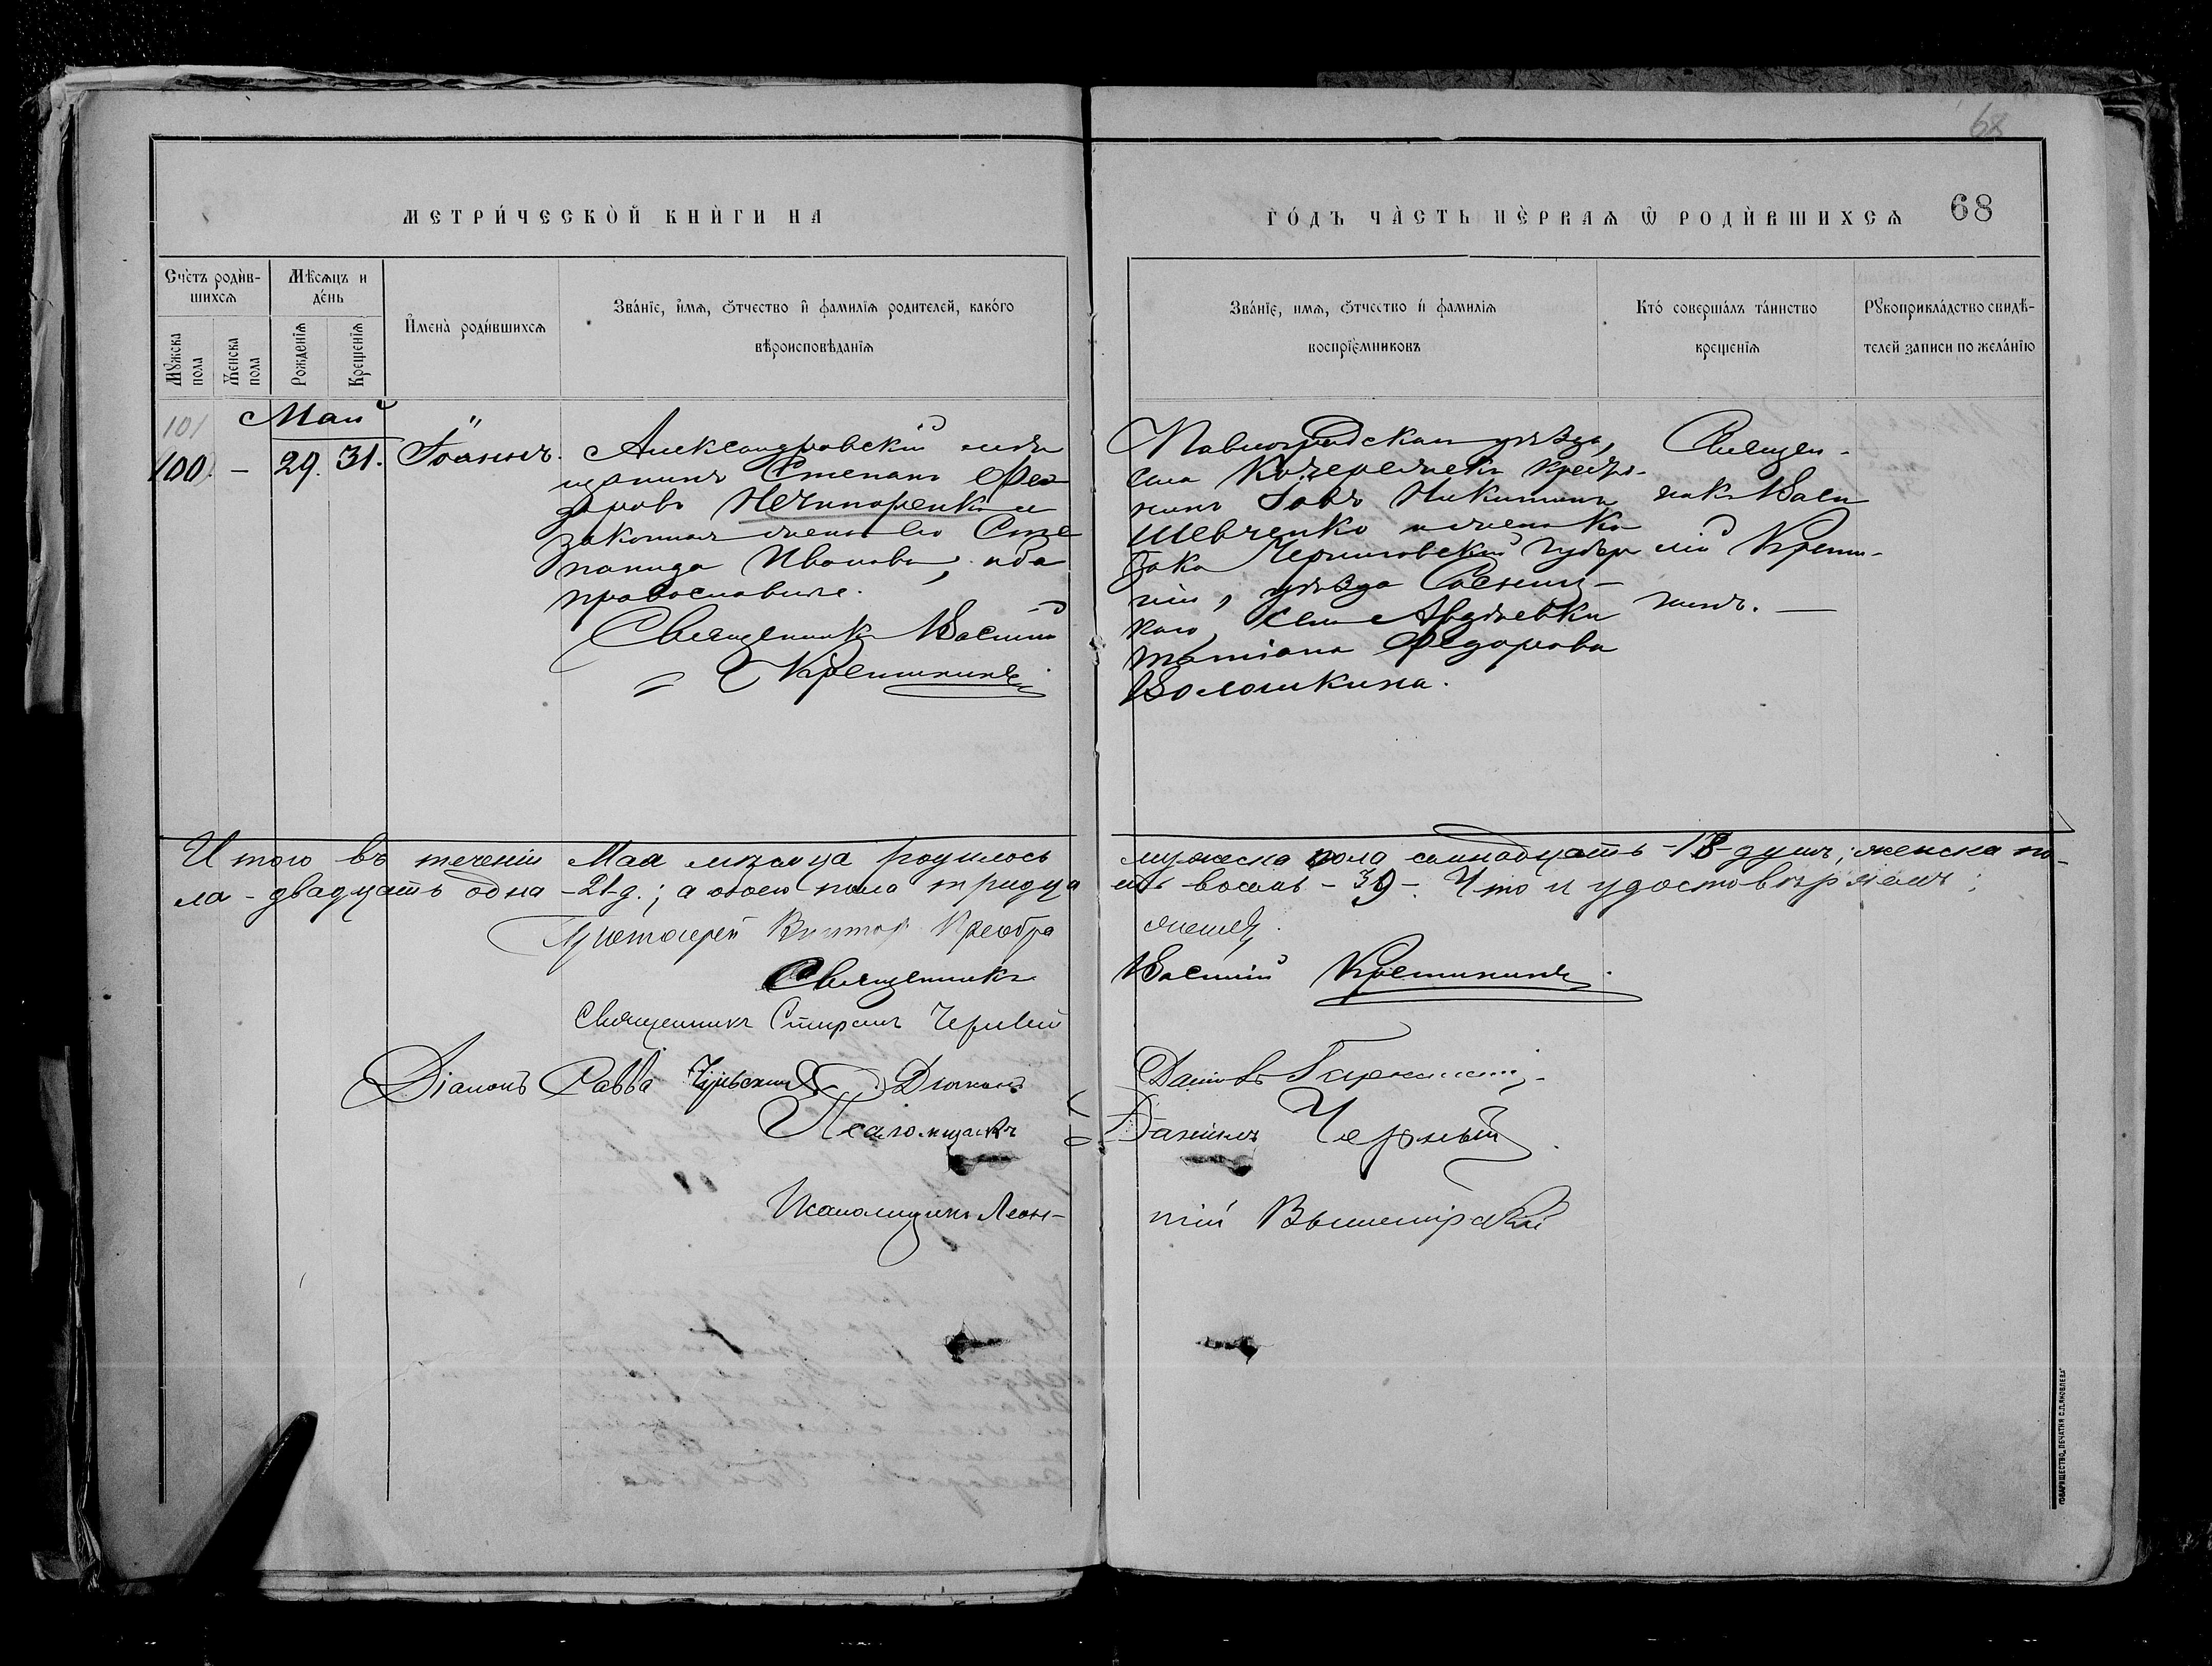 68
МЕТРИ́ЧЕСКОЙ КНИ́ГИ НА
ГО́ДЪ ЧА́СТЬ ПЕ́РВАѦ Ѡ РОДИ́ВШИХСѦ 68
Сче́тъ роди́в-
шихсѧ
Мꙋ́жска
пола
Же́нска
пола
Мѣ́сѧцъ и
де́нь
Рожденїѧ
Крещенїѧ
И҆мена̀ роди́вшихсѧ
Зва́нїе, и҆́мѧ, ѻ҆́тчество и҆ фамилїѧ родителей, како́го
вѣроисповѣданїѧ
Зва́нїе, имѧ, ѻ҆́тчество и҆ фамилїѧ
воспрїе́мниковъ
Кто́ соверша́лъ та́инство
креще́нїѧ
Рꙋкоприкла́дство свидѣ́-
телей записи по жела́нїю
Май
101
100. - 29. 31. Іоаннъ.
Александровскій мѣ
щанинъ Степанъ Фео
доровъ Нечипоренко и
законная жена его Сте
панида Иванова, оба
православные.
Священникъ Василій
Крешинъ
Павлоградскаго уѣзда,
села Кочережекъ крестья-
нинъ Іовъ Никитинъ
Шевченко и жена Ка
зака Черниговской губер
ніи, уѣзда Сосниц-
каго, села Авдѣевки
Татіана Федорова
Волошкина.
Священ-
никъ Васи
лій
Итого въ теченіи Мая мѣсяца родилось мужеска пола семнадцать -18- душъ; женска по-
ла - двадцать одна - 21 д.; а обоего пола тридца
ть восемь - 39 -. Что и удостовѣряемъ:
Протоіерей Викторъ Преобра
женскій.
Священникъ Василій
Священникъ Спиридонъ Чернявскій
Діаконъ Савва Діаконъ
Псаломщикъ Даніилъ Черный
Псаломщикъ Леон-
тій Вышемірскій
ТОВАРИЩЕСТВО „ПЕЧАТНЯ С.П.ЯКОВЛЕВА"